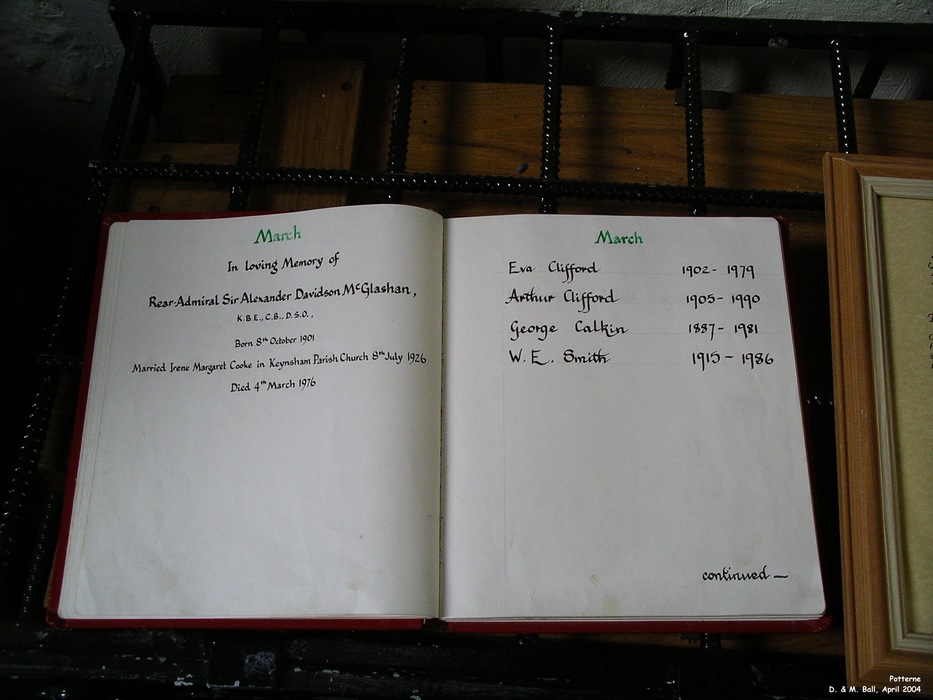 March
In loving Memory of
Rear-Admiral Sir Alexander Davidson McGlashan,
K.B.E., C.B., D.S.O.,
Born 8th October 1901
Married Irene Margaret Cooke in Keynsham Parish Church 8th July 1926
Died 4th March 1976
March
Eva Clifford 1902 - 1979
Arthur Clifford 1905 - 1990
George Calkin 1887 - 1981
W. E. Smith 1915 - 1986
continued —
Potterne
D. & M. Ball, April 2004